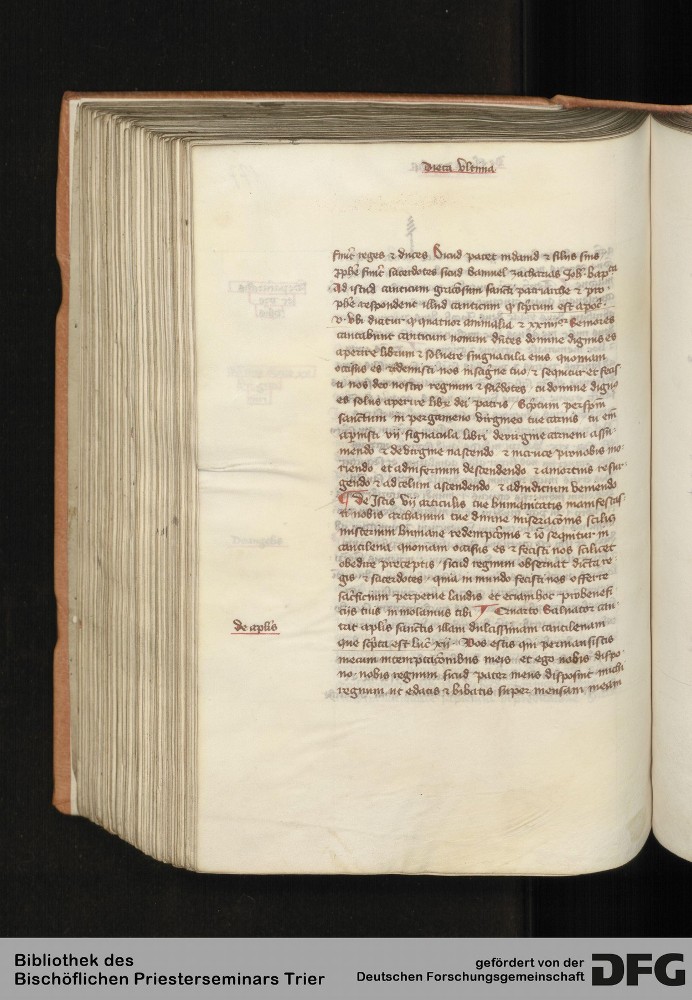 Dieta Ultima
fuit reges & duces Sicud patet in dauid & filijs suis
Ad istud canticum graciosum sancti patriarche & pro
phete respondent illud canticum qd scriptum est apoc
v vbi dicitur qd quatuor animalia & xxiiiior seniores
cantabant canticum nouum dicentes domine dignus es
aperire librum & soluere signacula eius quoniam
occisus es & redemisti nos in sanguine tuo & sequitur et fecis
ti nos deo nostro regnum & sacerdotes tu domine dignus
es solus aperire libr dei patris Scriptum per spm
sanctum in pergameno virgineo tue carnis tu em
apruisti vij signacula libri de virgine carnem assu
mendo & de virgine nascendo & in cruce pro nobis mo
riendo et ad infernum descendendo & a mortuis resur
gendo & ad celum ascendendo & ad iudicium veniendo
De Istis vij articulis tue humanitatis manifestas
ti nobis archanum tue diuine miseracionis scilicet
misterium humane redempcionis & io sequitur in
cantilena quoniam occisus es & fecisti nos scilicet
obedire preceptis sicud regnum obseruat dicta re
gis & sacerdotes quia in mundo fecisti nos offerre
sacrificium perpetue laudis et eciam hoc pro benefi
cijs tuis immolamus tibi Quarto Saluator can
de aplis
tat aplis sanctis illam dulcissimam cantilenam
que scpta est luc xxij Vos estis qui permansistis
mecum in temptacionibus meis et ego nobis dispo
no nobis regnum sicud pater meus disposuit michi
regnum ut edatis & bibatis super mensam meam
Bibliothek des
Bischöflichen Priesterseminars Trier
gefördert von der
Deutschen Forschungsgemeinschaft
DFG